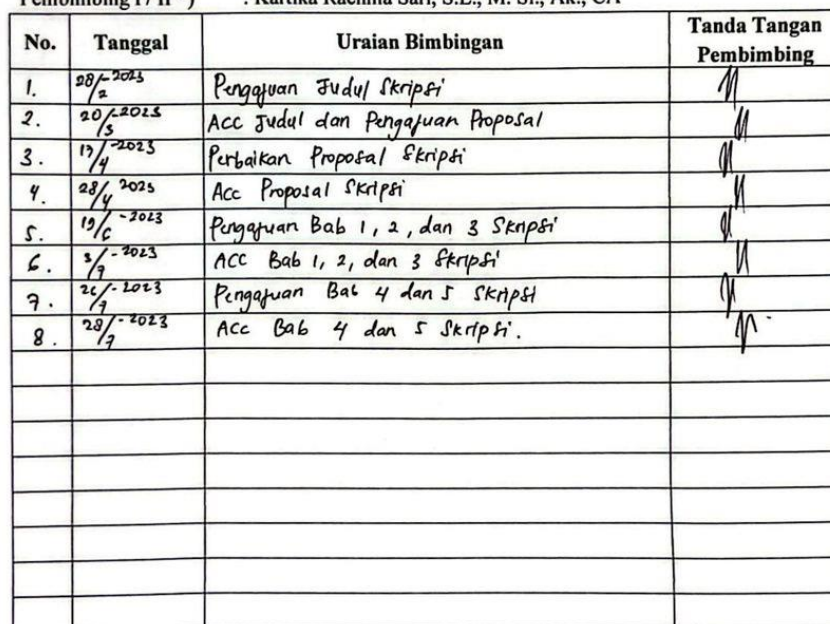 Pembimbing I / II *) : Kartika Rachma Sari, S.E., M. Si., Ak., CA
No. Tanggal Uraian Bimbingan Tanda Tangan Pembimbing
1. 28/2-2023 Pengajuan Judul Skripsi
2. 20/3-2023 Acc Judul dan Pengajuan Proposal
3. 17/4-2023 Perbaikan Proposal Skripsi
4. 28/4 2023 Acc Proposal Skripsi
5. 19/6-2023 Pengajuan Bab 1, 2, dan 3 Skripsi
6. 3/7-2023 ACC Bab 1, 2, dan 3 Skripsi
7. 26/7-2023 Pengajuan Bab 4 dan 5 Skripsi
8. 28/7-2023 Acc Bab 4 dan 5 Skripsi.